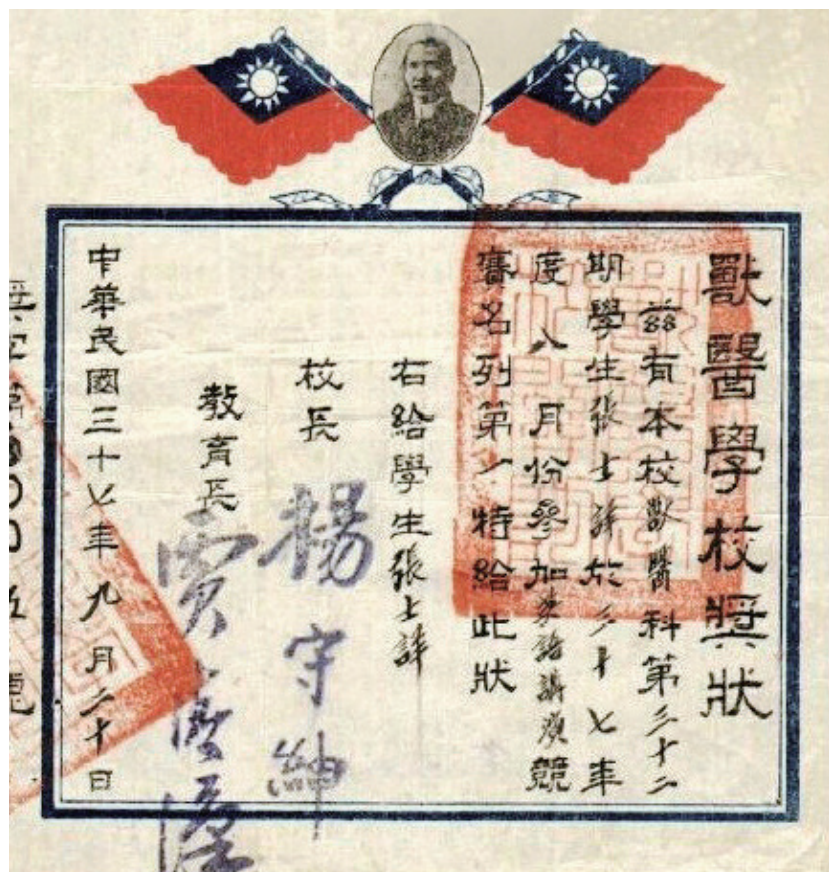 獸醫學校獎狀
茲有本校獸醫科第三十二
期學生張士詳於三十七年
度八月份參加英語講演競
賽名列第一特給此狀
右給學生張士詳
校長 楊守紳
教育長 賈清漢
中華民國三十七年九月二十日